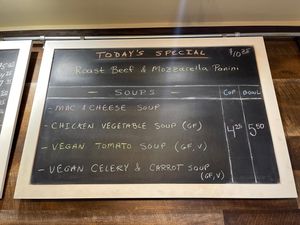 TODAY'S SPECIAL $10.25
Roast Beef & Mozzarella Panini
- SOUPS - CUP BOWL
- MAC & CHEESE SOUP
- CHICKEN VEGETABLE SOUP (GF) 4.25 5.50
- VEGAN TOMATO SOUP (GF, V)
- VEGAN CELERY & CARROT SOUP
(GF, V)